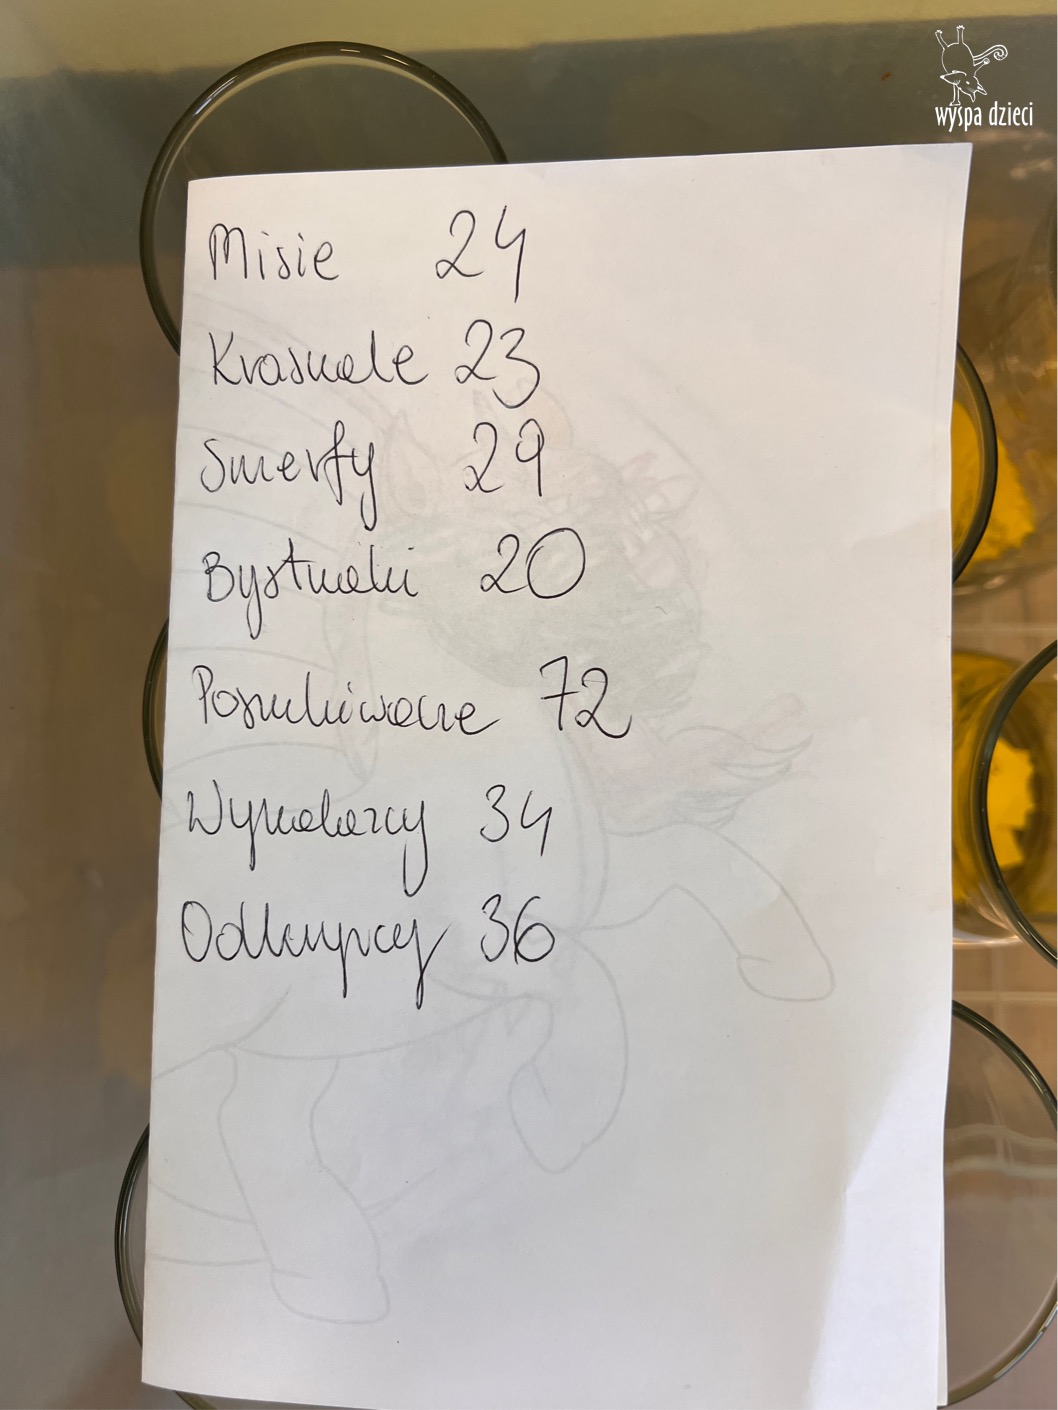 wyspa dzieci
Misie 24
Krasnale 23
Smerfy 29
Bystrzaki 20
Poszukiwacze 72
Wynalazcy 34
Odkrywcy 36